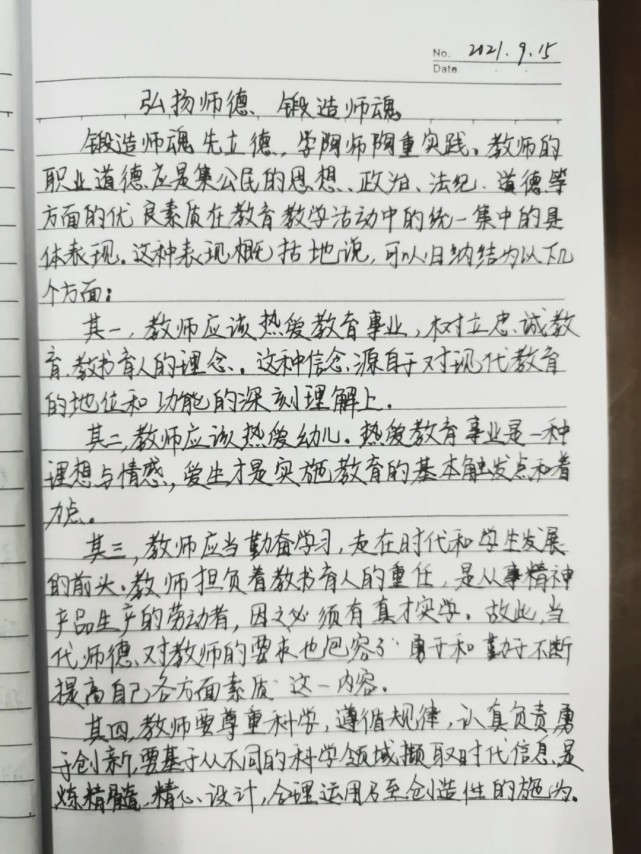 No. 2021.9.15
Date
弘扬师德、锻造师魂
锻造师魂先立德,学陶师陶重实践。教师的
职业道德应是集公民的思想、政治、法纪、道德等
方面的优良素质在教育教学活动中的统一集中的具
体表现。这种表现概括地说,可以归纳结为以下几
个方面:
其一,教师应该热爱教育事业,树立忠诚教
育、教书育人的理念。这种信念源自于对现代教育
的地位和功能的深刻理解上.
其二,教师应该热爱幼儿。热爱教育事业是一种
理想与情感,爱生才是实施教育的基本触发点和着
力点。
其三,教师应当勤奋学习,走在时代和学生发展
的前头。教师担负着教书育人的重任,是从事精神
产品生产的劳动者,因之必须有真才实学。故此,当
代师德、对教师的要求也包容了勇于和勤于不断
提高自己各方面素质这一内容.
其四,教师要尊重科学,遵循规律,认真负责,勇
于创新,要基于从不同的科学领域撷取时代信息、是
炼精髓、精心设计,合理运用乃至创造性的施为.